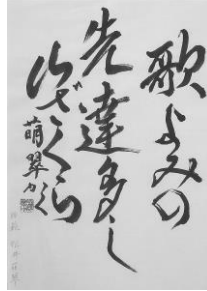 歌よみの
先達多し
山ざくら
萌翠かく